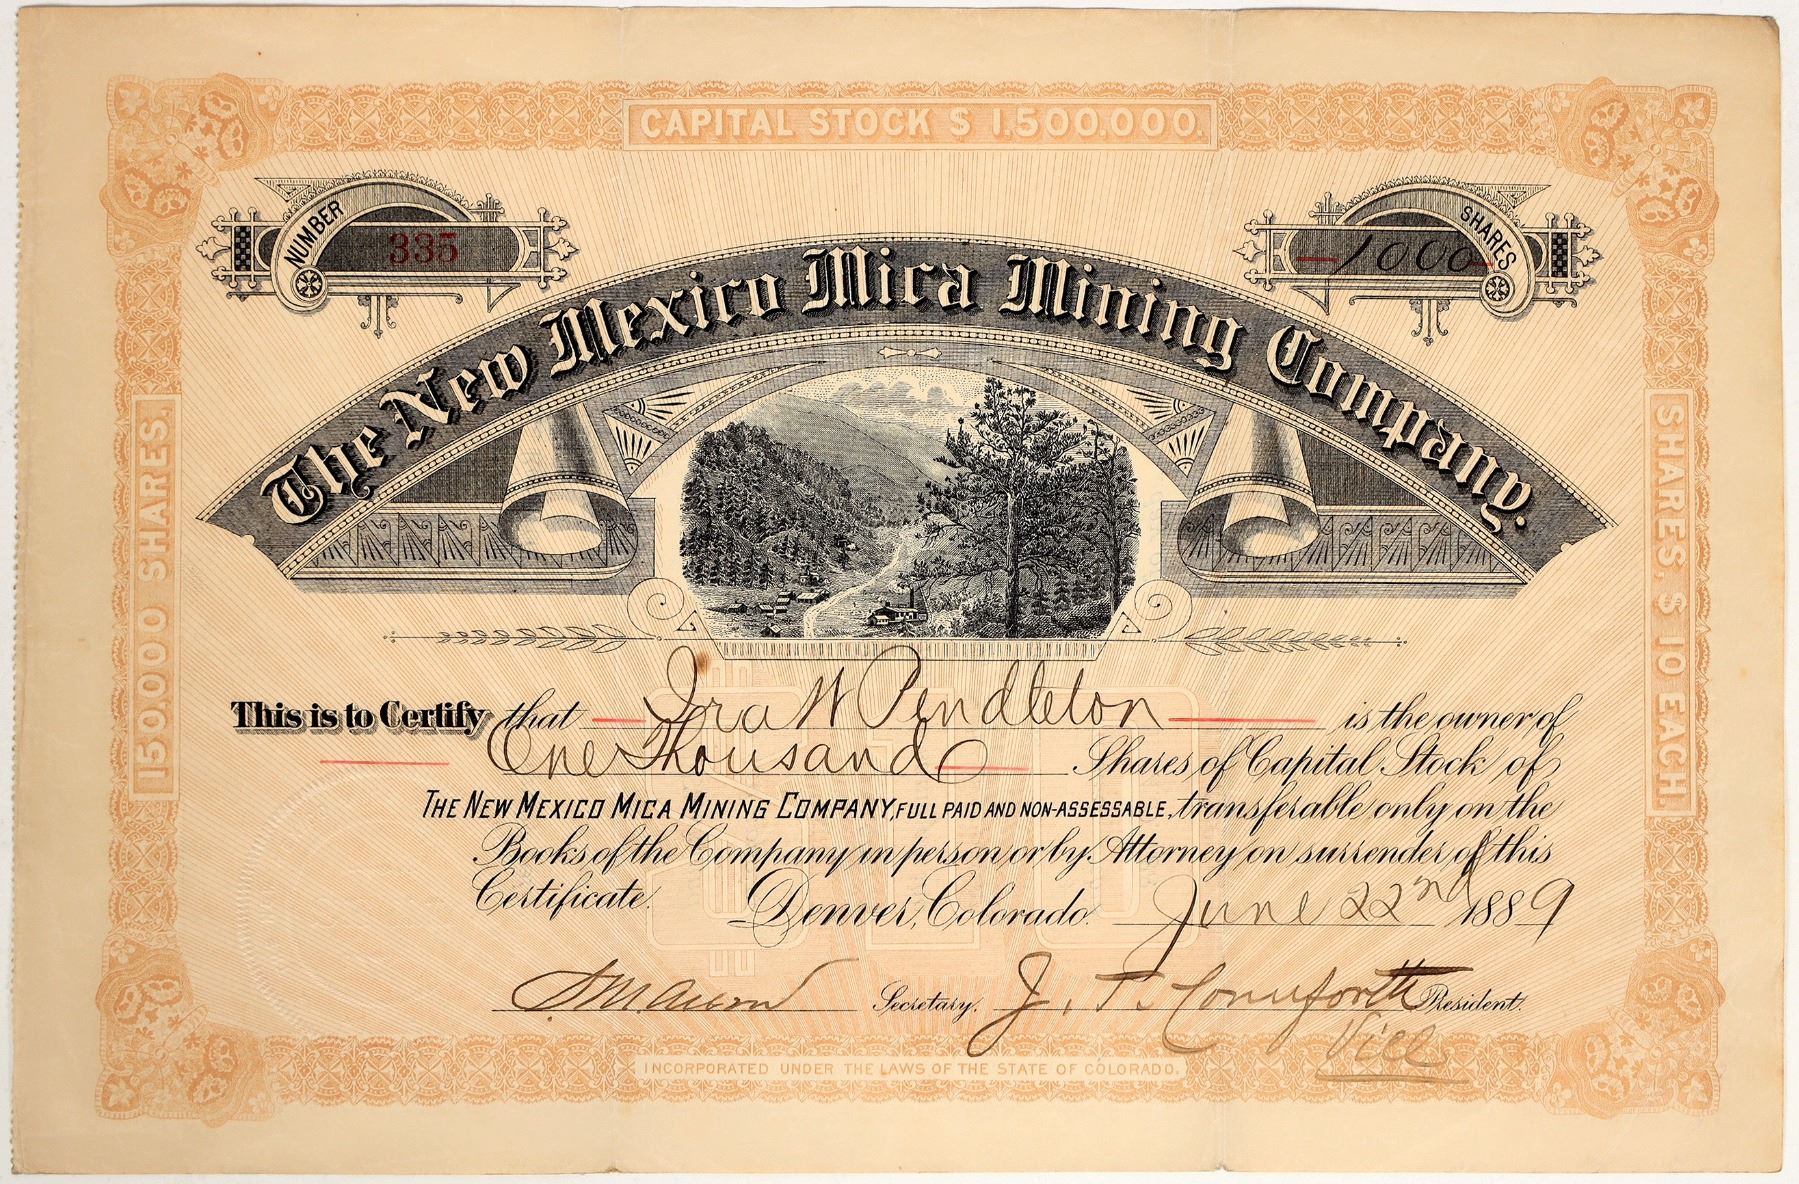 CAPITAL STOCK $ 1,500,000.
NUMBER
335
SHARES
1000
The New Mexico Mica Mining Company.
150,000 SHARES.
SHARES, $ 10 EACH.
This is to Certify that Ira W Pendleton is the owner of
One Thousand Shares of Capital Stock of
THE NEW MEXICO MICA MINING COMPANY, FULL PAID AND NON-ASSESSABLE, transferable only on the
Books of the Company in person or by Attorney on surrender of this
Certificate. Denver, Colorado. June 22nd 1889
Secretary. J. T. Cornforth President.
Vice
INCORPORATED UNDER THE LAWS OF THE STATE OF COLORADO.